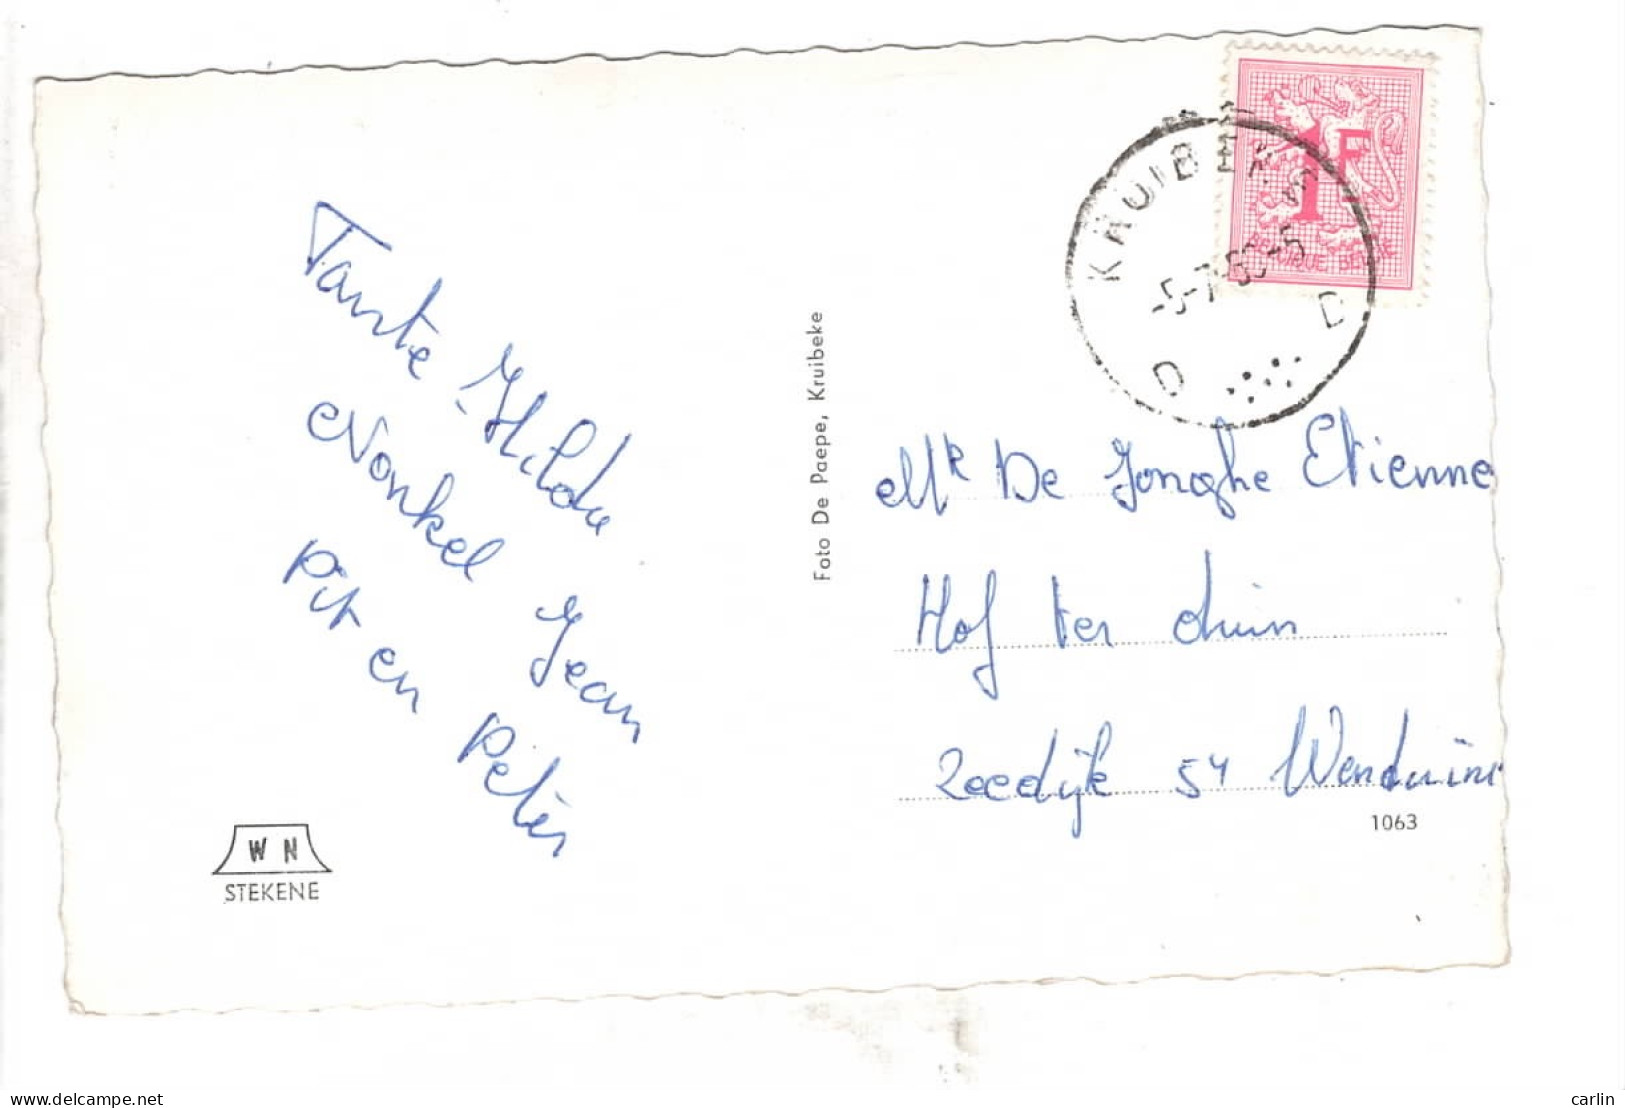 Tante Hilda
Nonkel Jean
Pit en Peter
W N
STEKENE
Foto De Paepe, Kruibeke
KRUIBEKE
D D
1F
BELGIQUE BELGIE
Mr De Jonghe Etienne
Hof ter duin
Zeedijk 54 Wenduine
1063
delcampe.net
carlin